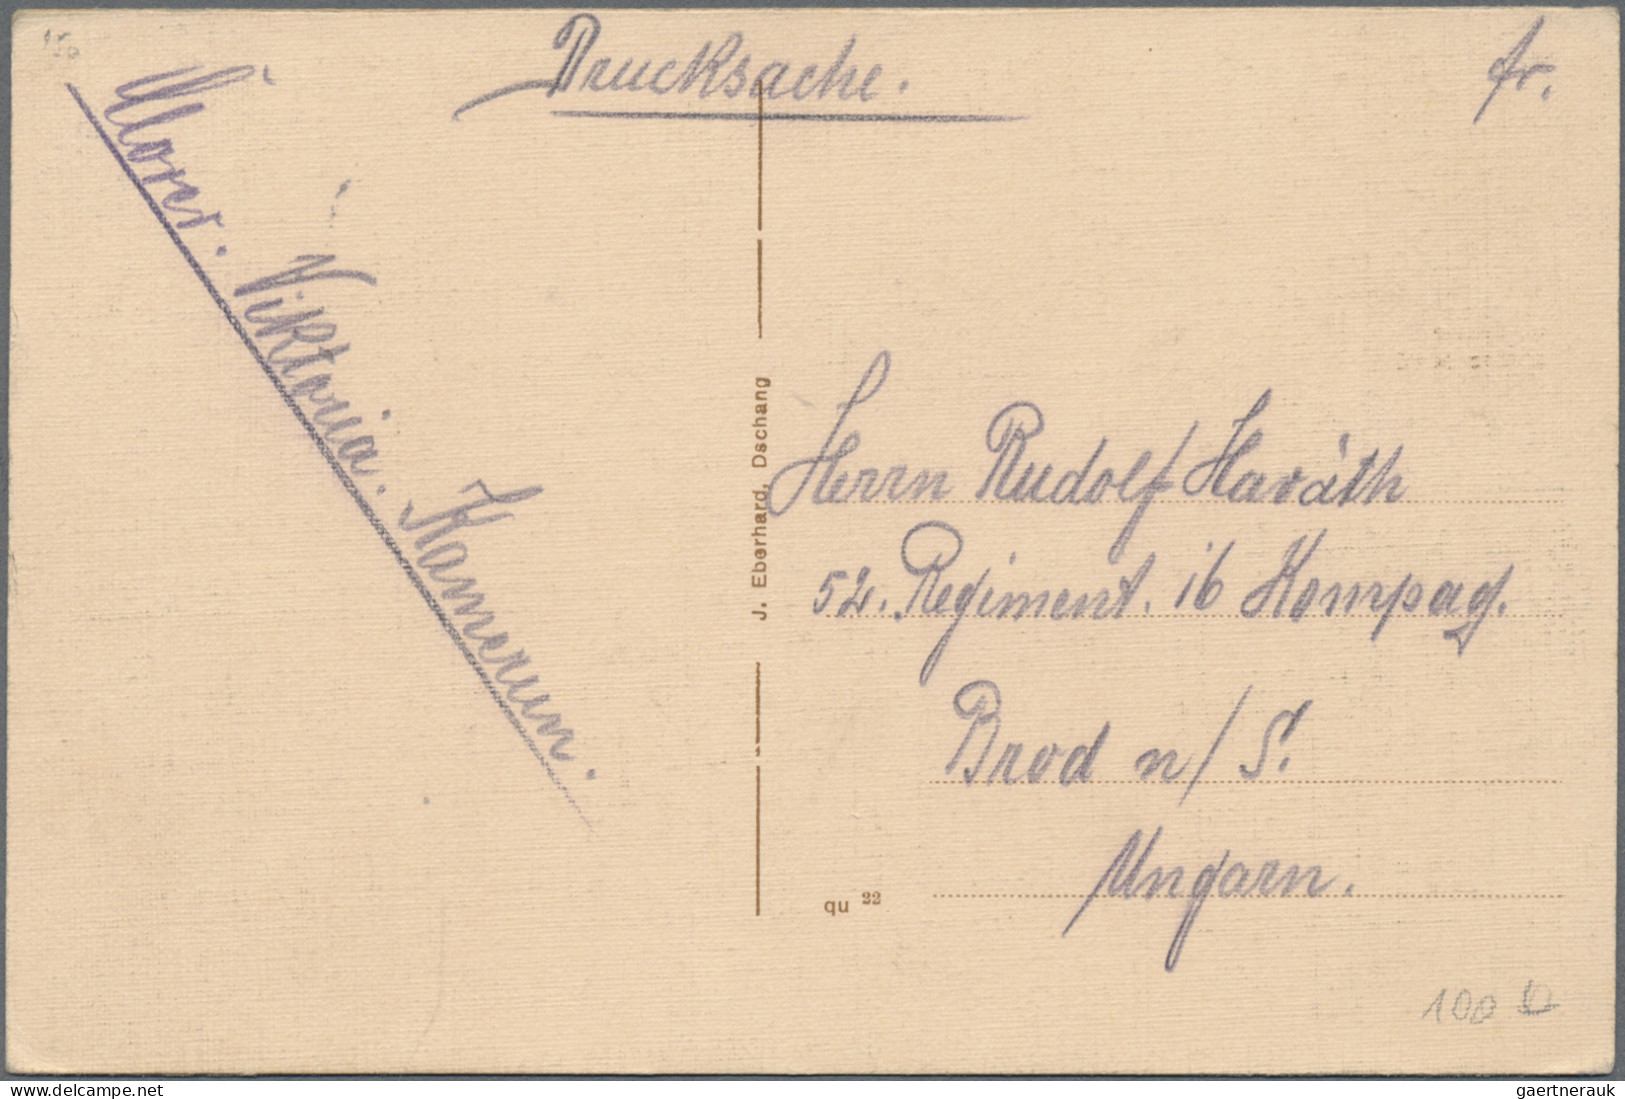 Drucksache.
fr.
Viktoria. Kamerun.
J. Eberhard, Dschang
Herrn Rudolf Haváth
52. Regiment. 16 Kompag.
Brod n/S.
Ungarn.
qu 22
100
delcampe.net
gaertnerauk